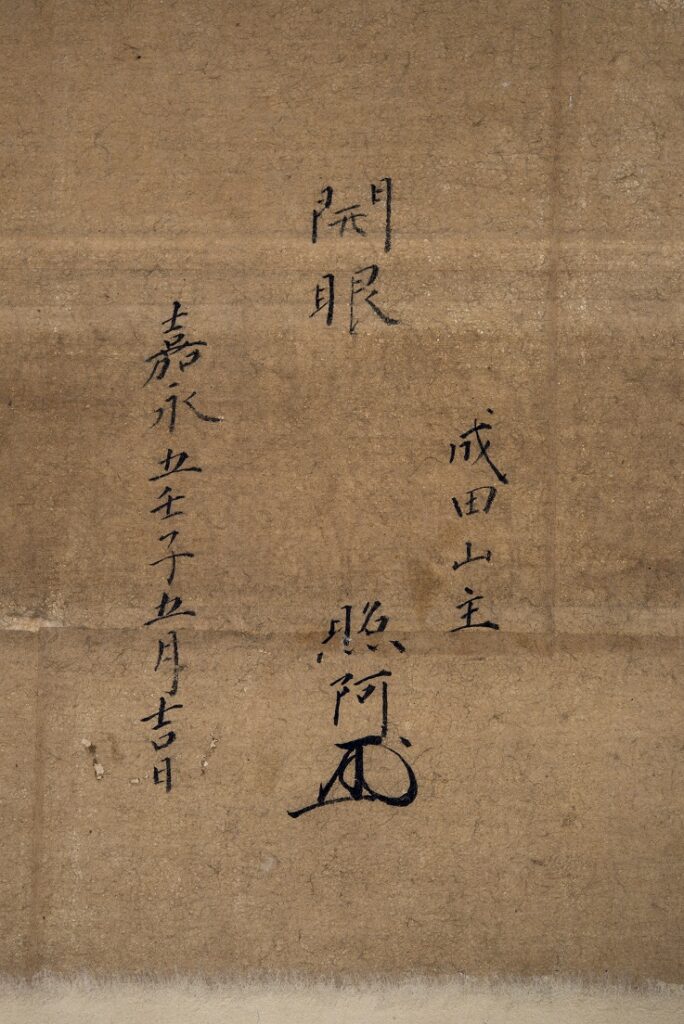 成田山主
開眼
照阿
嘉永五壬子五月吉日